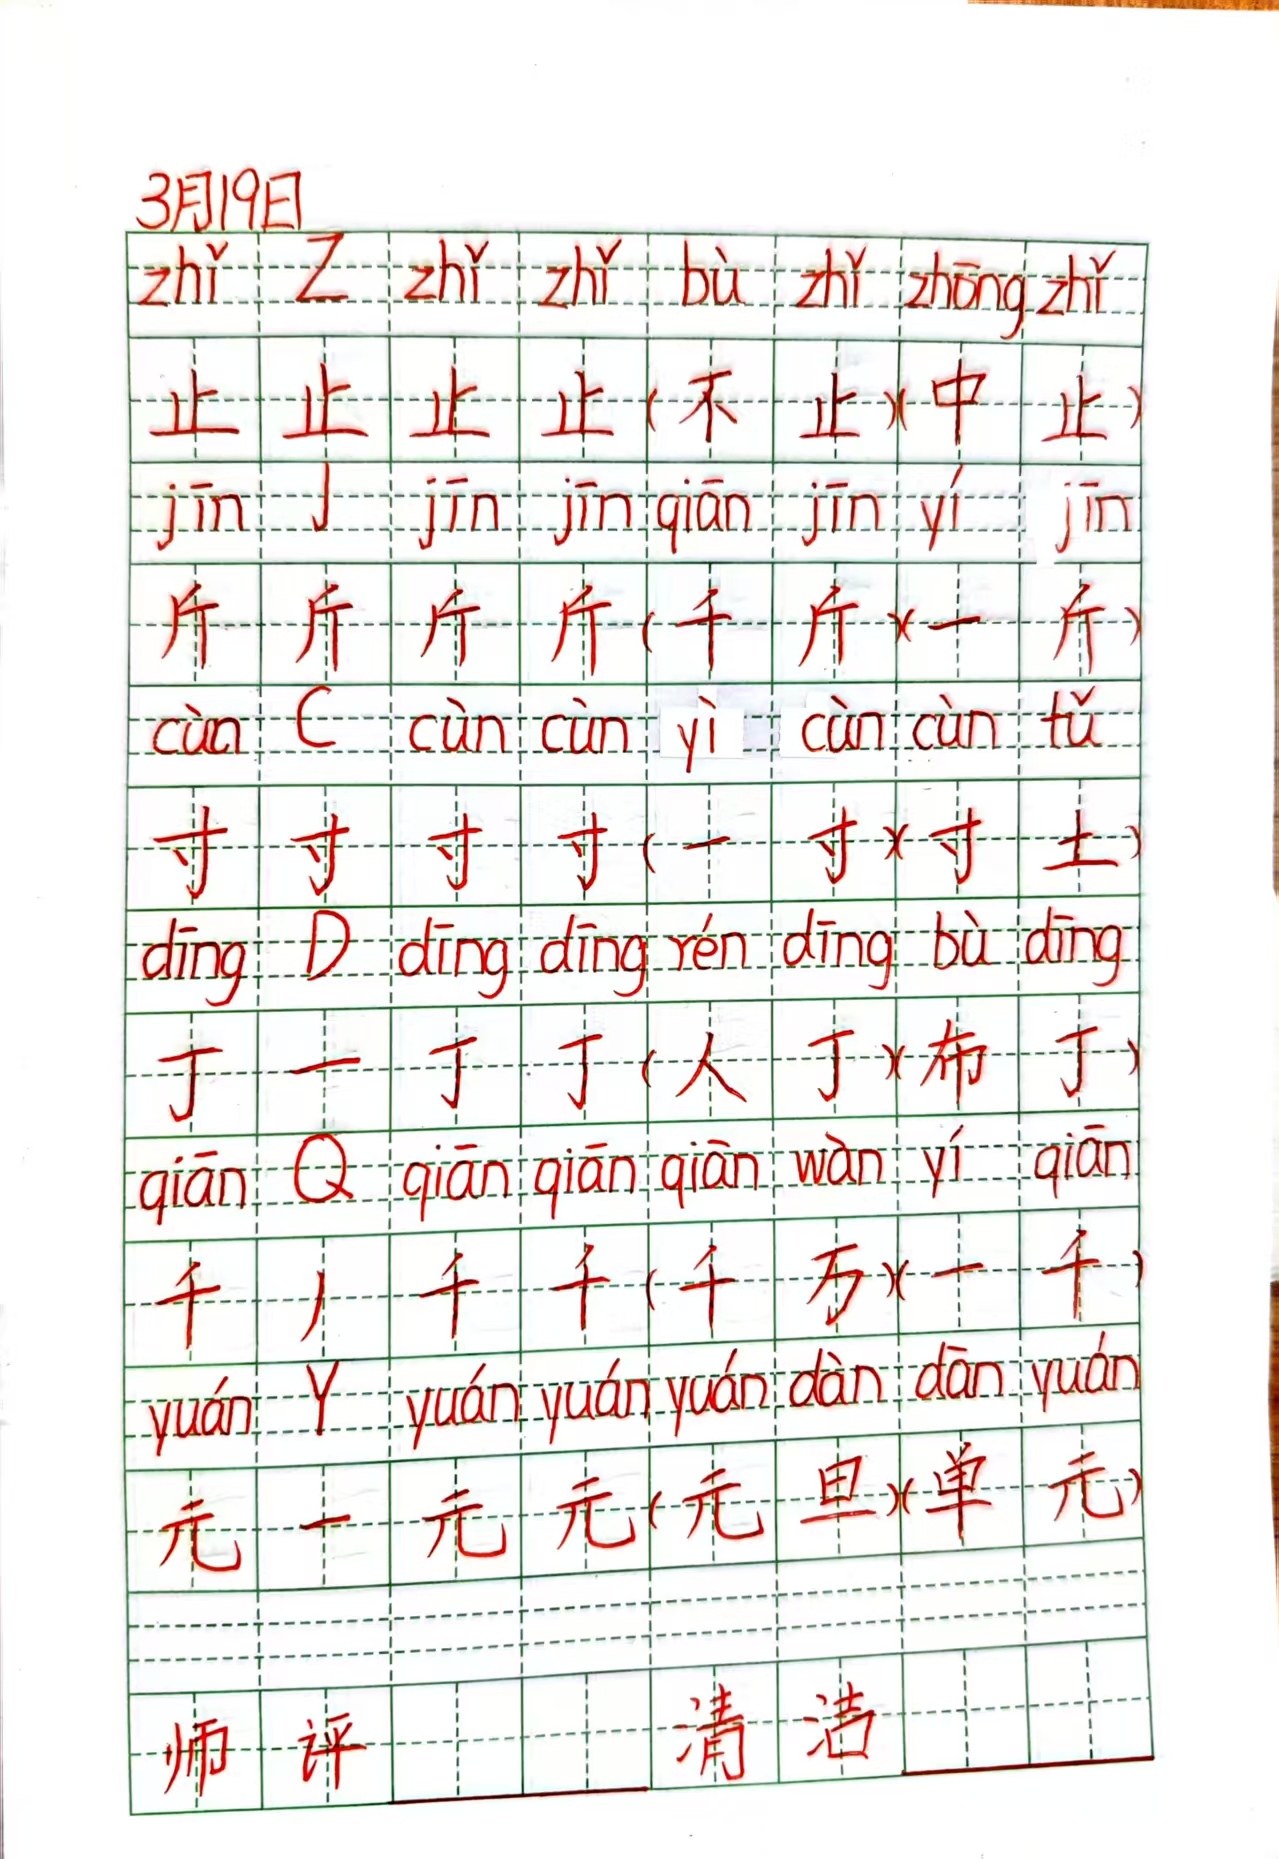 3月19日
zhǐ Z zhǐ zhǐ bù zhǐ zhōng zhǐ
止 止 止 止 (不 止)(中 止)
jīn J jīn jīn qiān jīn yí jīn
斤 斤 斤 斤 (千 斤)(一 斤)
cùn C cùn cùn yì cùn cùn tǔ
寸 寸 寸 寸 (一 寸)(寸 土)
dīng D dīng dīng rén dīng bù dīng
丁 一 丁 丁 (人 丁)(布 丁)
qiān Q qiān qiān qiān wàn yí qiān
千 丿 千 千 (千 万)(一 千)
yuán Y yuán yuán yuán dàn dān yuán
元 一 元 元 (元 旦)(单 元)
师 评 清 洁